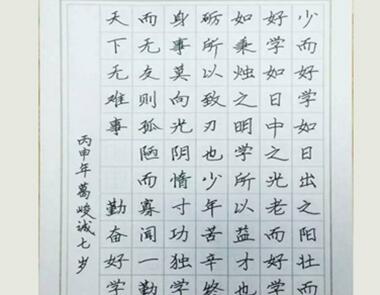 少而好学如日出之阳壮而
好学如日中之光老而好学
如秉烛之明学所以益才也
砺所以致刃也少年辛苦终
身事莫向光阴惰寸功独学
而无友则孤陋而寡闻一勤
天下无难事 勤奋好学
丙申年葛峻诚七岁